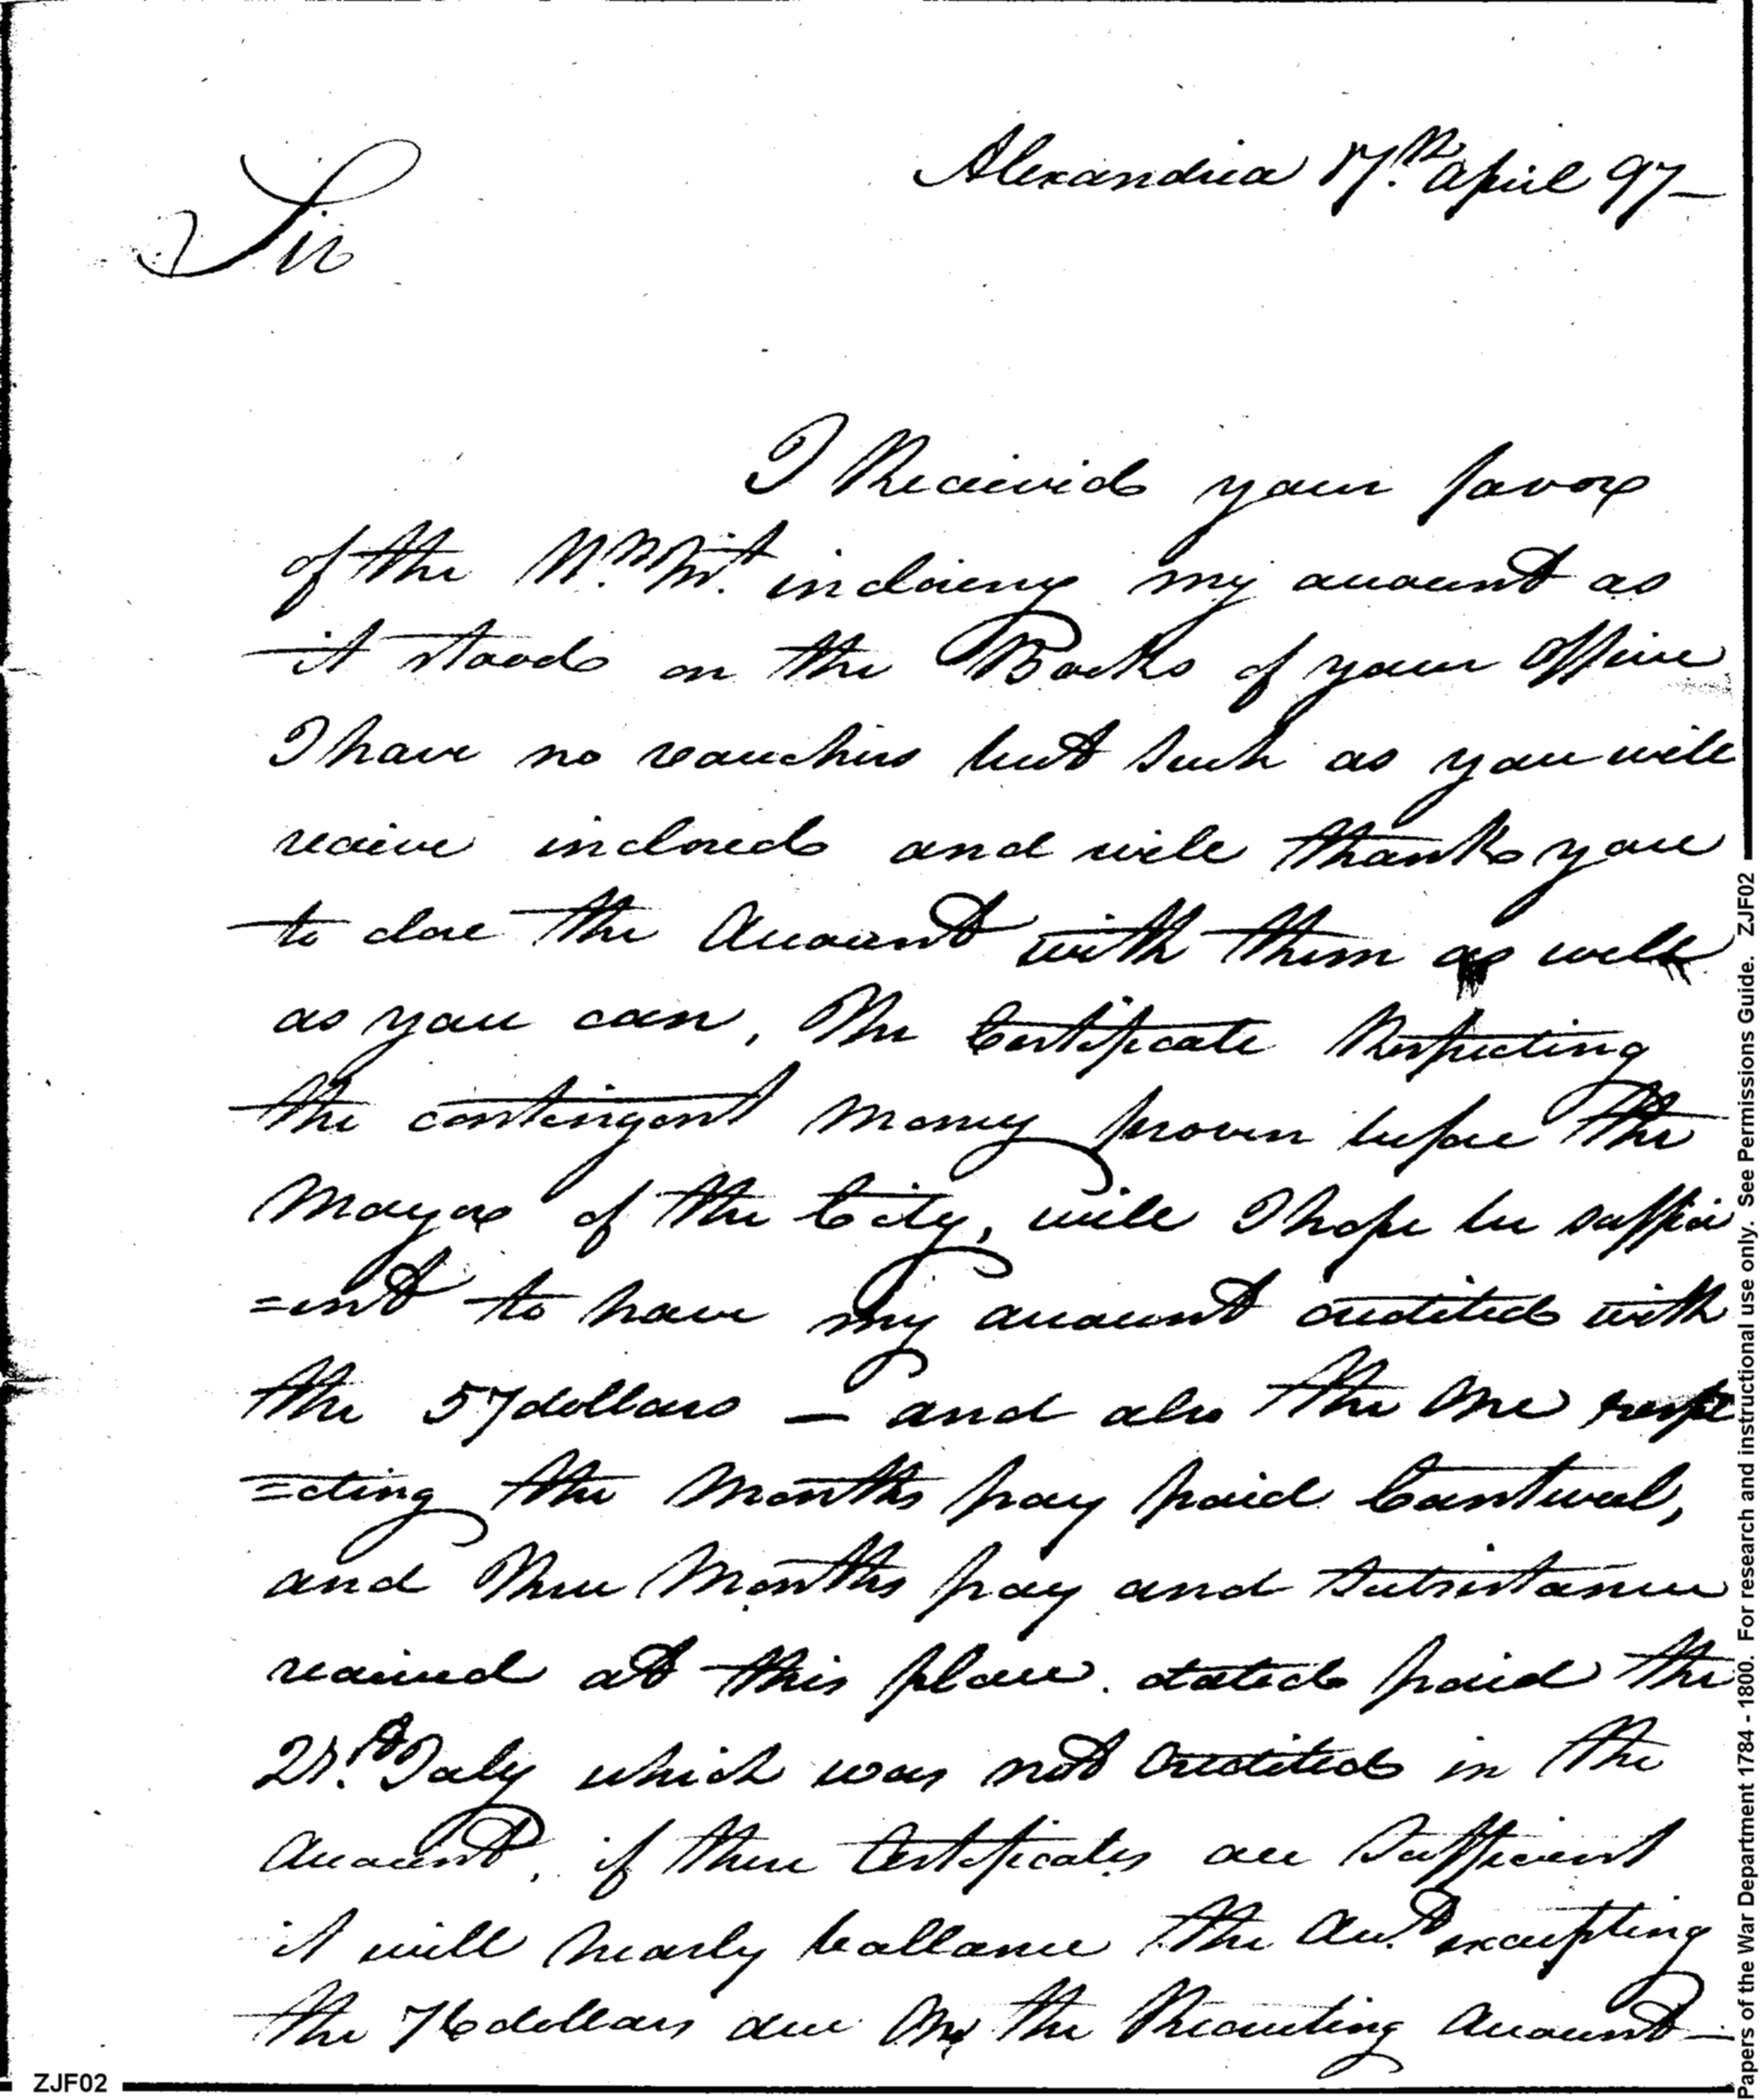 Alexandria 17.th April 97—
Sir
I Received your favor
of the 11.th Inst. inclosing my account as
it stood on the Books of your office
I have no vouchers but such as you will
receive inclosed and will thank you
to close the Account with them as well
as you can, The Certificate Respecting
the contingent Money proven before the
Mayor of the City, will I hope be suffici
=ent to have my account credited with
the 57 dollars — and also the One respe
=cting the Months pay paid Cantwel,
and Three Months pay and Subsistance
received at this place. dated paid the
21.st July which was not Credited in the
Account, if these Certificates are Sufficient
it will nearly ballance the Acc.t excepting
the 76 dollars due On the Recruiting Account—
ZJF02
Papers of the War Department 1784 - 1800. For research and instructional use only. See Permissions Guide. ZJF02